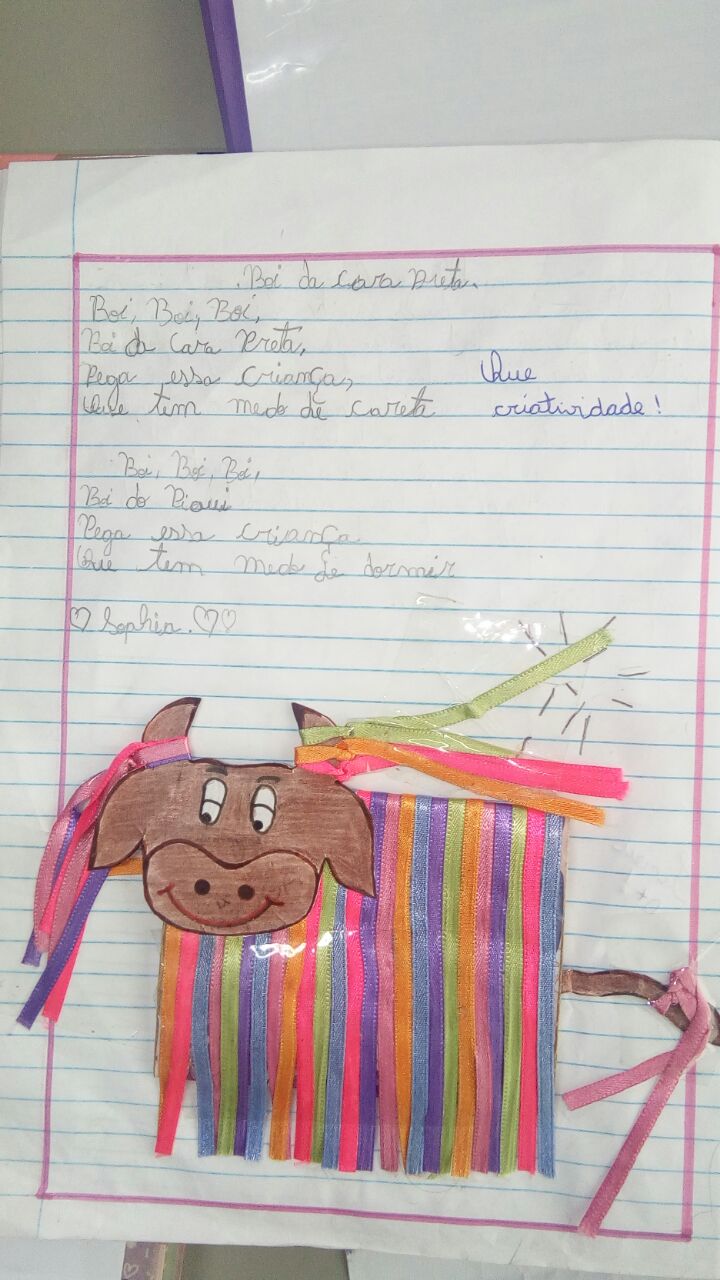 .Boi da cara preta.
Boi, Boi, Boi,
Boi da Cara Preta,
Pega essa criança,
Que tem medo de careta
Que
criatividade!
Boi, Boi, Boi,
Boi do Piaui
Pega essa criança
Que tem medo de dormir
♡ Sophia. ♡♡